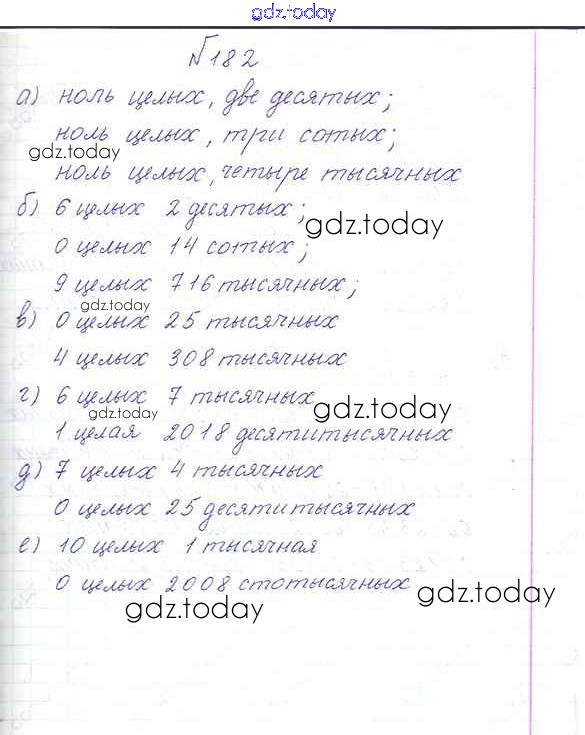 gdz.today
№182
а) ноль целых, две десятых;
ноль целых, три сотых;
gdz.today
ноль целых, четыре тысячных
б) 6 целых 2 десятых;
gdz.today
0 целых 14 сотых;
9 целых 716 тысячных;
gdz.today
в) 0 целых 25 тысячных
4 целых 308 тысячных
г) 6 целых 7 тысячных
gdz.today
gdz.today
1 целая 2018 десятитысячных
д) 7 целых 4 тысячных
0 целых 25 десятитысячных
е) 10 целых 1 тысячная
0 целых 2008 стотысячных
gdz.today
gdz.today